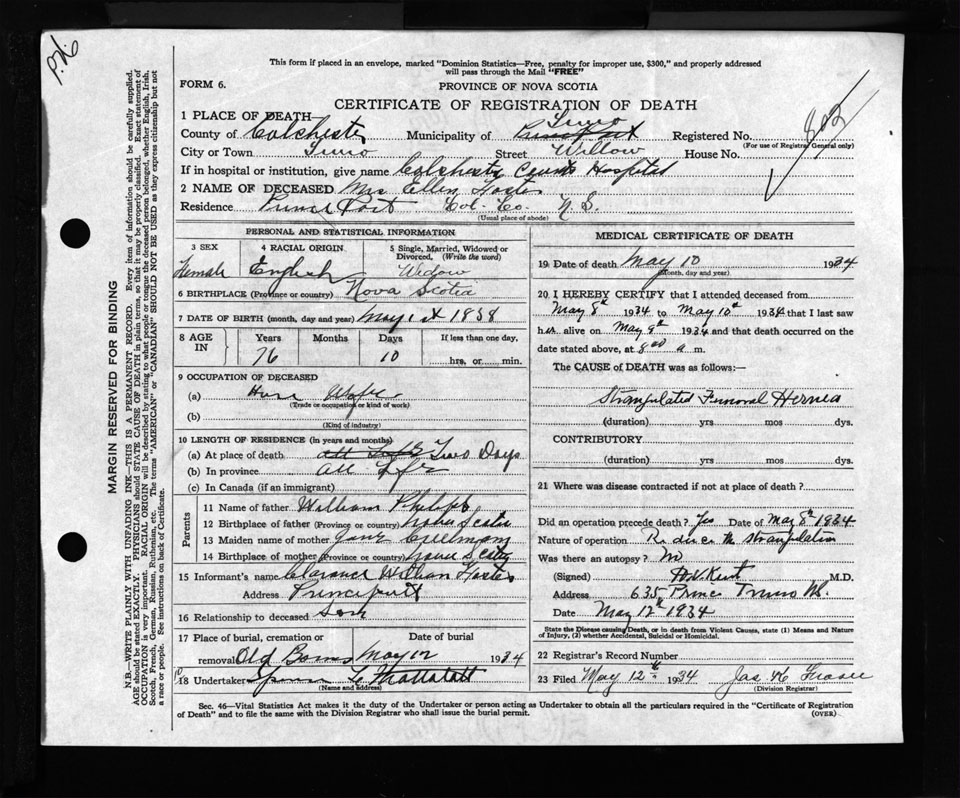 P.N.
This form if placed in an envelope, marked "Dominion Statistics—Free, penalty for improper use, $300," and properly addressed
will pass through the Mail "FREE"
FORM 6.
PROVINCE OF NOVA SCOTIA
CERTIFICATE OF REGISTRATION OF DEATH
1 PLACE OF DEATH
Truro
County of Colchester Municipality of Registered No.
(For use of Registrar General only)
City or Town Truro Street Willow House No.
If in hospital or institution, give name Colchester County Hospital
2 NAME OF DECEASED Mrs Ellen Foster
Residence Princeport Col. Co. N S.
(Usual place of abode)
PERSONAL AND STATISTICAL INFORMATION
3 SEX 4 RACIAL ORIGIN 5 Single, Married, Widowed or
Divorced, (Write the word)
Female English Widow
6 BIRTHPLACE (Province or country) Nova Scotia
7 DATE OF BIRTH (month, day and year) May 1st 1858
8 AGE IN Years Months Days If less than one day,
76 10 hrs. or min.
9 OCCUPATION OF DECEASED
(a) House Wife
(Trade or occupation or kind of work)
(b)
(Kind of industry)
10 LENGTH OF RESIDENCE (in years and months)
(a) At place of death all Life Two Days
(b) In province all Life
(c) In Canada (if an immigrant)
Parents
11 Name of father William Phillips
12 Birthplace of father (Province or country) Nova Scotia
13 Maiden name of mother Jane Creelman
14 Birthplace of mother (Province or country) Nova Scotia
15 Informant's name Clarence William Foster
Address Princeport
16 Relationship to deceased Son
17 Place of burial, cremation or Date of burial
removal Old Barns May 12 1934
18 Undertaker
(Name and address)
MEDICAL CERTIFICATE OF DEATH
19 Date of death May 10 1934
(month, day and year)
20 I HEREBY CERTIFY that I attended deceased from
May 8th 1934 to May 10th 1934 that I last saw
her alive on May 9th 1934 and that death occurred on the
date stated above, at 8 00 a m.
The CAUSE of DEATH was as follows:—
Strangulated Femoral Hernia
(duration) yrs mos dys.
CONTRIBUTORY
(duration) yrs. mos. dys.
21 Where was disease contracted if not at place of death?
Did an operation precede death? Yes Date of May 8th 1934
Nature of operation Reduce strangulation
Was there an autopsy? No
(Signed) Kent M.D.
Address 635 Prince Truro NS.
Date May 12th 1934
State the Disease causing Death, or in death from Violent Causes, state (1) Means and Nature
of Injury, (2) whether Accidental, Suicidal or Homicidal.
22 Registrar's Record Number
23 Filed May 12th 1934 Jas. K Fraser
(Division Registrar)
Sec. 46—Vital Statistics Act makes it the duty of the Undertaker or person acting as Undertaker to obtain all the particulars required in the "Certificate of Registration
of Death" and to file the same with the Division Registrar who shall issue the burial permit.
(OVER)
MARGIN RESERVED FOR BINDING
N.B.—WRITE PLAINLY WITH UNFADING INK—THIS IS A PERMANENT RECORD. Every item of information should be carefully supplied.
AGE should be stated EXACTLY. PHYSICIANS should STATE CAUSE OF DEATH in plain terms, so that it may be properly classified. Exact statement of
OCCUPATION is very important. RACIAL ORIGIN will be described by stating to what people or tongue the deceased person belonged, whether English, Irish,
Scotch, French, German, Russian, Ruthenian, etc. The terms "AMERICAN" or "CANADIAN" SHOULD NOT BE USED as they express citizenship but not
a race or people. See instructions on back of Certificate.